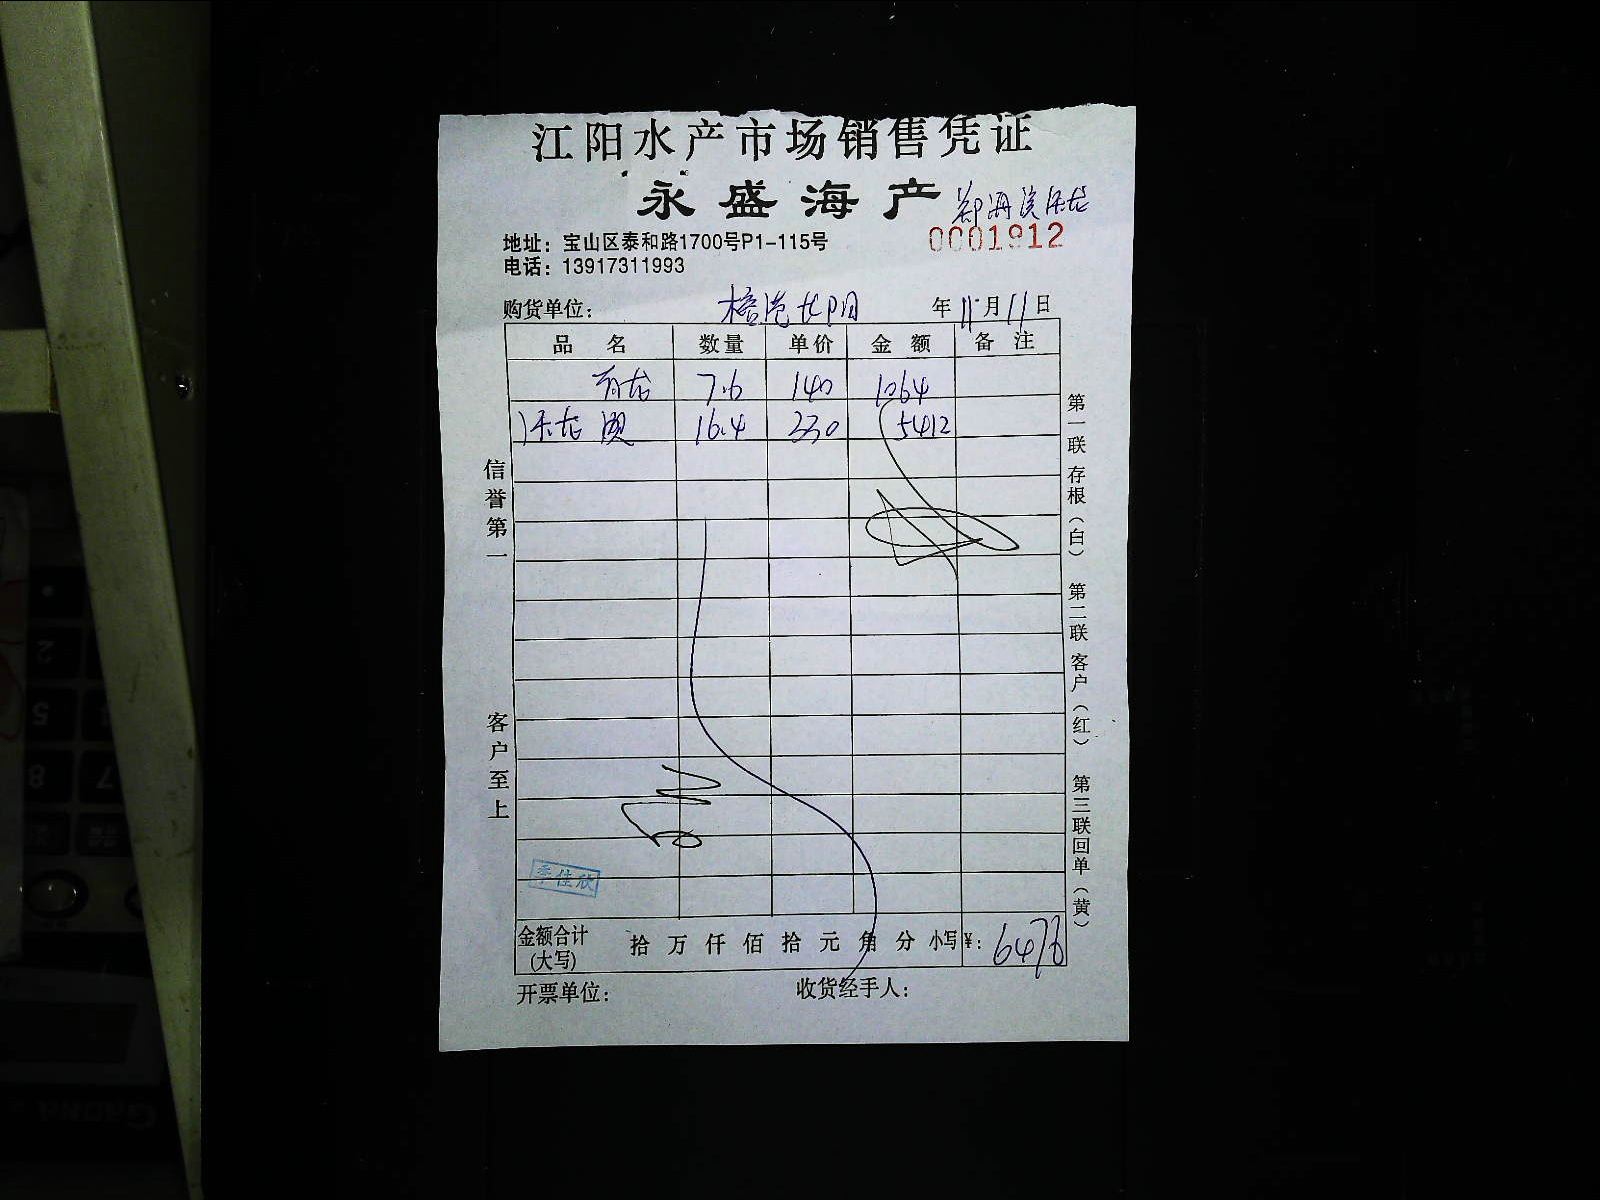 江阳水产市场销售凭证
永盛海产
地址：宝山区泰和路1700号P1-115号
0001912
电话：13917311993
购货单位： 年 11月11日
品名 数量 单价 金额 备注
青龙 7.6 140 1064
澳 16.4 330 5412
信誉第一
客户至上
第一联 存根（白） 第二联 客户（红） 第三联回单（黄）
季佳欣
金额合计（大写） 拾 万 仟 佰 拾 元 角 分 小写¥： 6476
开票单位： 收货经手人：